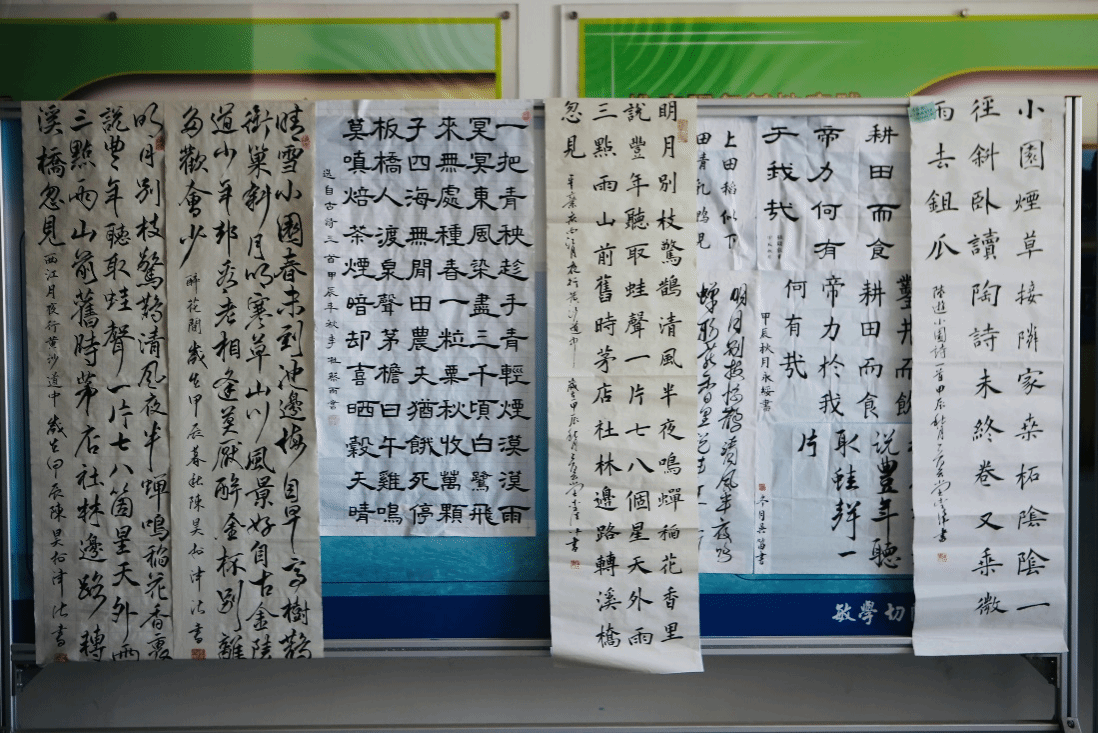 小園煙草接隣家桑柘陰陰一
徑斜臥讀陶詩未終卷又乘微
雨去鉏瓜
陸遊小園詩一首甲辰秋月
書
耕田而食
帝力何有
于我哉
鑿井而飲
耕田而食
帝力於我
何有哉
甲辰秋月永綏書
說豐年聽
取蛙聲一
片
今月吳笛書
上田稻似下
田青乳鴨見
明月别枝驚鵲清風半夜鳴
蟬稻花香里说丰
敏學切
明月别枝驚鵲清風半夜鳴蟬稻花香里
說豐年聽取蛙聲一片七八個星天外雨
三點雨山前舊時茅店社林邊路轉溪橋
忽見 辛棄疾西江月夜行黃沙道中 歲在甲辰秋月 書
一把青秧趁手青輕煙漠漠雨
冥冥東風染盡三千頃白鷺飛
來無處種春一粒粟秋收萬顆
子四海無閒田農夫猶餓死停
板橋人渡泉聲茅檐日午雞鳴
莫嗔焙茶煙暗却喜晒穀天晴
選自古詩三首甲辰年秋季祖蔡雨書
晴雪小園春未到池邊梅自早高樹鵲
銜巢斜月明寒草山川風景好自古金陵
道少年却看老相逢莫厭醉金杯别離
多歡會少 醉花間 歲在甲辰暮秋陳昊 書
明月别枝驚鵲清風夜半蟬鳴稻花香裏
說豐年聽取蛙聲一片七八箇星天外兩
三點雨山前舊時茅店社林邊路轉
溪橋忽見 西江月夜行黃沙道中 歲在甲辰陳昊 書